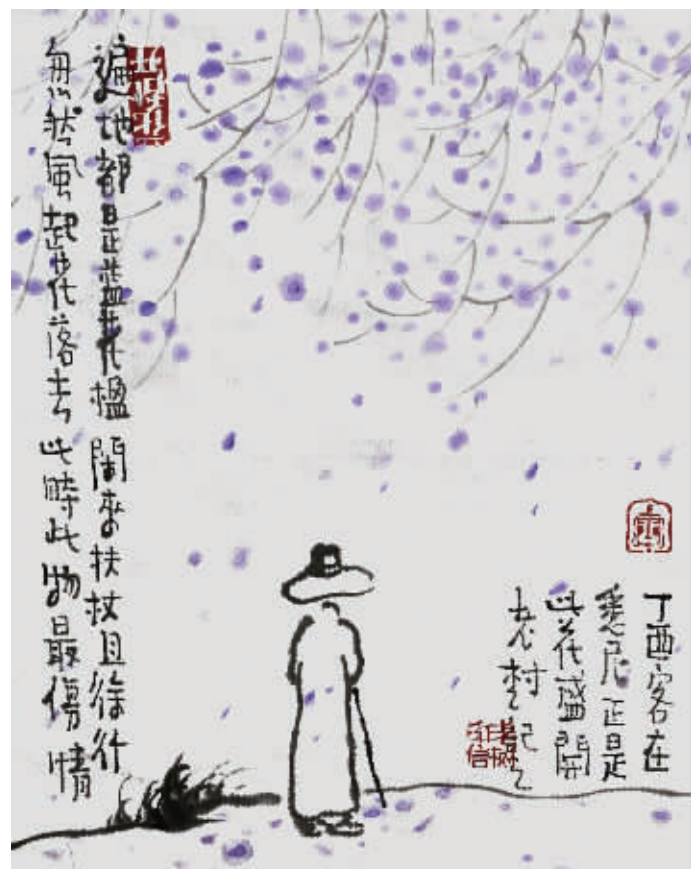 遍地都是蓝花楹 閑來扶杖且徐行
忽然風起花落去 此時此物最傷情
丁酉客在
悉尼正是
此花盛開
老樹記之